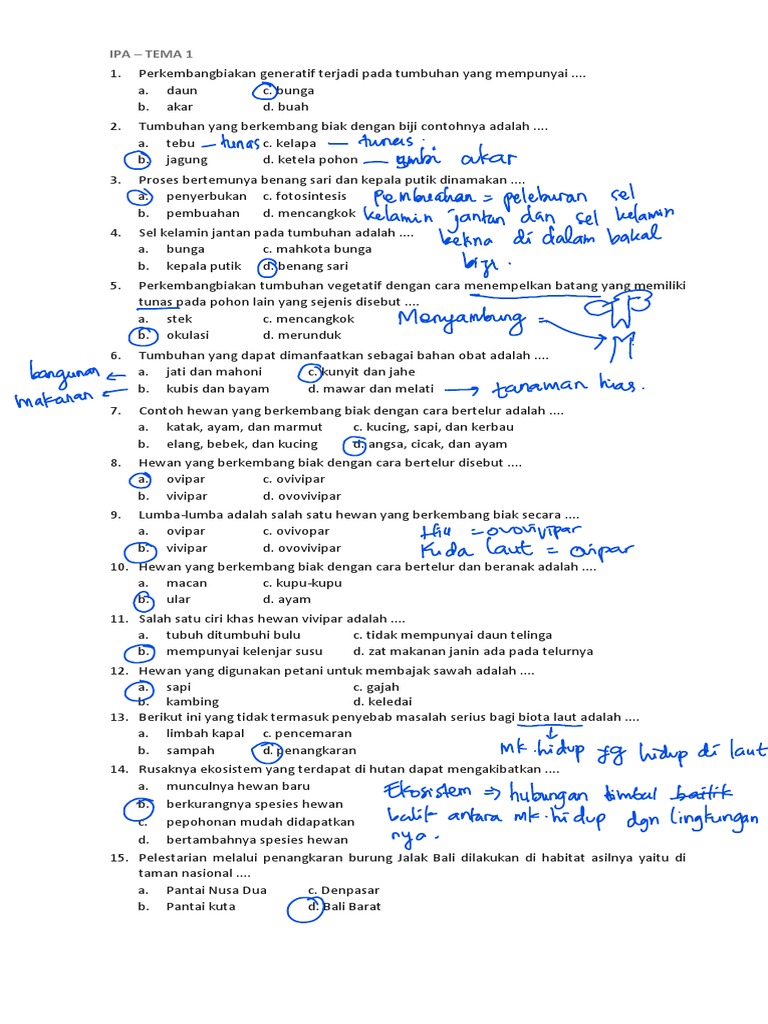 IPA – TEMA 1
1. Perkembangbiakan generatif terjadi pada tumbuhan yang mempunyai ....
a. daun c. bunga
b. akar d. buah
2. Tumbuhan yang berkembang biak dengan biji contohnya adalah ....
a. tebu — tunas c. kelapa — tunas.
b. jagung d. ketela pohon — umbi akar
3. Proses bertemunya benang sari dan kepala putik dinamakan ....
a. penyerbukan c. fotosintesis Pembuahan = peleburan sel
b. pembuahan d. mencangkok kelamin jantan dan sel kelamin
4. Sel kelamin jantan pada tumbuhan adalah .... betina di dalam bakal
a. bunga c. mahkota bunga biji.
b. kepala putik d. benang sari
5. Perkembangbiakan tumbuhan vegetatif dengan cara menempelkan batang yang memiliki
tunas pada pohon lain yang sejenis disebut ....
a. stek c. mencangkok Menyambung =
b. okulasi d. merunduk
6. Tumbuhan yang dapat dimanfaatkan sebagai bahan obat adalah ....
bangunan ← a. jati dan mahoni c. kunyit dan jahe
makanan ← b. kubis dan bayam d. mawar dan melati → tanaman hias.
7. Contoh hewan yang berkembang biak dengan cara bertelur adalah ....
a. katak, ayam, dan marmut c. kucing, sapi, dan kerbau
b. elang, bebek, dan kucing d. angsa, cicak, dan ayam
8. Hewan yang berkembang biak dengan cara bertelur disebut ....
a. ovipar c. ovivipar
b. vivipar d. ovovivipar
9. Lumba-lumba adalah salah satu hewan yang berkembang biak secara ....
a. ovipar c. ovivopar Hiu = ovovivipar
b. vivipar d. ovovivipar Kuda laut = ovipar
10. Hewan yang berkembang biak dengan cara bertelur dan beranak adalah ....
a. macan c. kupu-kupu
b. ular d. ayam
11. Salah satu ciri khas hewan vivipar adalah ....
a. tubuh ditumbuhi bulu c. tidak mempunyai daun telinga
b. mempunyai kelenjar susu d. zat makanan janin ada pada telurnya
12. Hewan yang digunakan petani untuk membajak sawah adalah ....
a. sapi c. gajah
b. kambing d. keledai
13. Berikut ini yang tidak termasuk penyebab masalah serius bagi biota laut adalah ....
a. limbah kapal c. pencemaran
b. sampah d. penangkaran mk.hidup yg hidup di laut
14. Rusaknya ekosistem yang terdapat di hutan dapat mengakibatkan ....
a. munculnya hewan baru Ekosistem ⇒ hubungan timbal
b. berkurangnya spesies hewan balik antara mk.hidup dgn lingkungan
c. pepohonan mudah didapatkan nya.
d. bertambahnya spesies hewan
15. Pelestarian melalui penangkaran burung Jalak Bali dilakukan di habitat asilnya yaitu di
taman nasional ....
a. Pantai Nusa Dua c. Denpasar
b. Pantai kuta d. Bali Barat